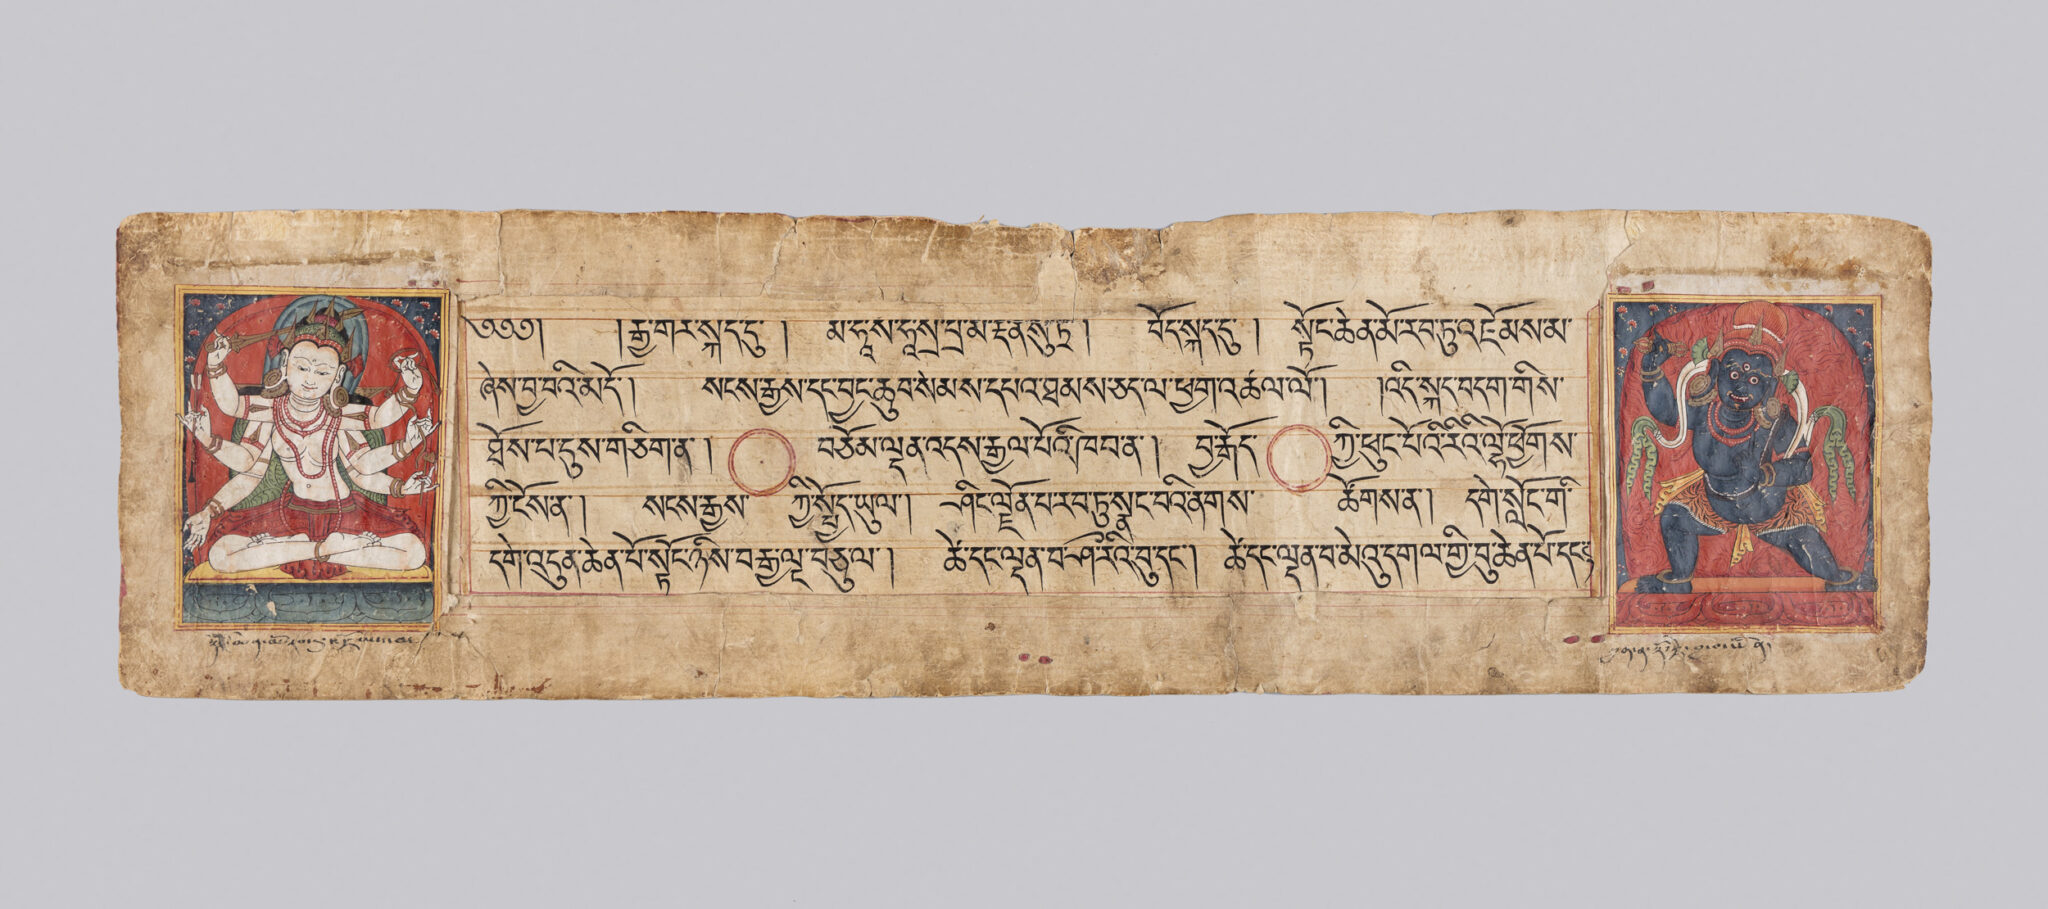 ༄༅༅། །རྒྱ་གར་སྐད་དུ། མ་ཧཱ་ས་ཧཱ་སྲ་པྲ་མ་རྡ་ན་སུ་ཏྲ། བོད་སྐད་དུ། སྟོང་ཆེན་མོ་རབ་ཏུ་འཇོམས་མ་
ཞེས་བྱ་བའི་མདོ། སངས་རྒྱས་དང་བྱང་ཆུབ་སེམས་དཔའ་ཐམས་ཅད་ལ་ཕྱག་འཚལ་ལོ། །འདི་སྐད་བདག་གིས་
ཐོས་པ་དུས་གཅིག་ན། བཅོམ་ལྡན་འདས་རྒྱལ་པོའི་ཁབ་ན། བྱ་རྒོད་ཀྱི་ཕུང་པོའི་རིའི་ལྷོ་ཕྱོགས་
ཀྱི་ངོས་ན། སངས་རྒྱས་ཀྱི་སྤྱོད་ཡུལ། ཤིང་ལྗོན་པ་རབ་ཏུ་སྣང་བའི་ནགས་ཚོགས་ན། དགེ་སློང་གི་
དགེ་འདུན་ཆེན་པོ་སྟོང་ཉིས་བརྒྱ་ལྔ་བཅུ་ལ། ཚེ་དང་ལྡན་བ་ཤ་རིའི་བུ་དང། ཚེ་དང་ལྡན་བ་མེའུ་དགལ་གྱི་བུ་ཆེན་པོ་དང་